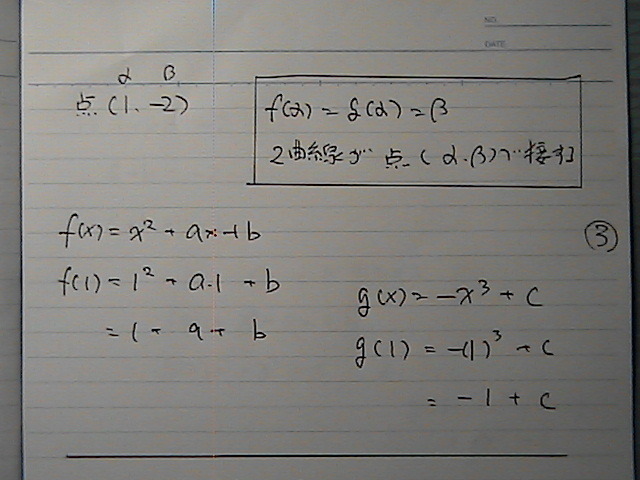 NO.
DATE
α β
点 (1. -2)
f(α) = g(α) = β
2曲線が 点 (α.β)で接する
f(x) = x² + ax + b
③
f(1) = 1² + a・1 + b
= 1 + a + b
g(x) = -x³ + c
g(1) = -(1)³ + c
= -1 + c